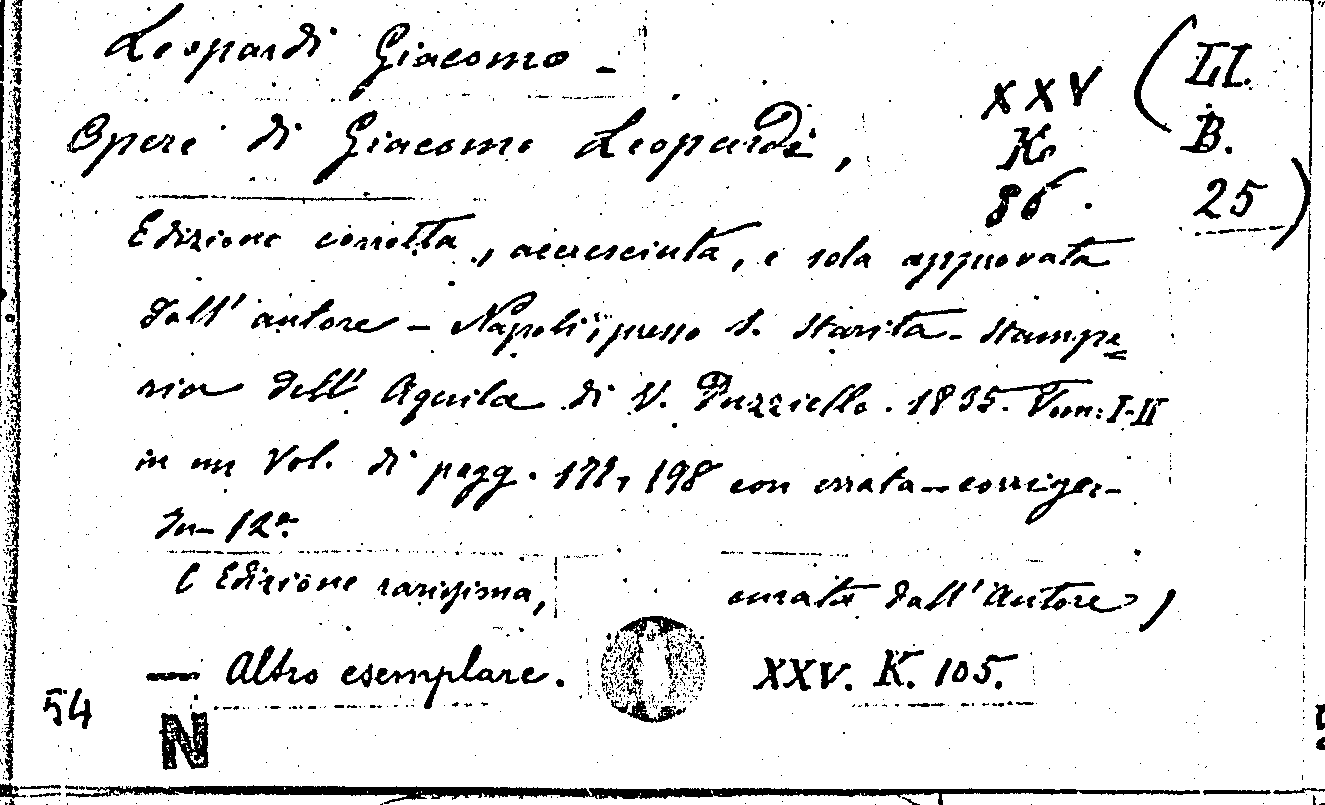 Leopardi Giacomo -
Opere di Giacomo Leopardi,
XXV
K.
86.
(LI.
B.
25)
Edizione corretta, accresciuta, e sola approvata
dall' autore - Napoli, presso S. Starita - Stampe=
ria dell' Aquila di V. Puzziello. 1835. Tom: I-II
in un Vol. di pagg. 177, 198 con errata-corrige -
In-12º.
(Edizione rarissima, curata dall' Autore)
— Altro esemplare. XXV. K. 105.
54
N